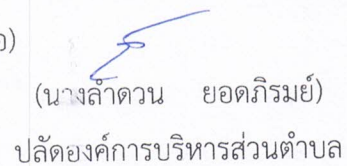 อ)
(นางลำดวน ยอดภิรมย์)
ปลัดองค์การบริหารส่วนตำบล